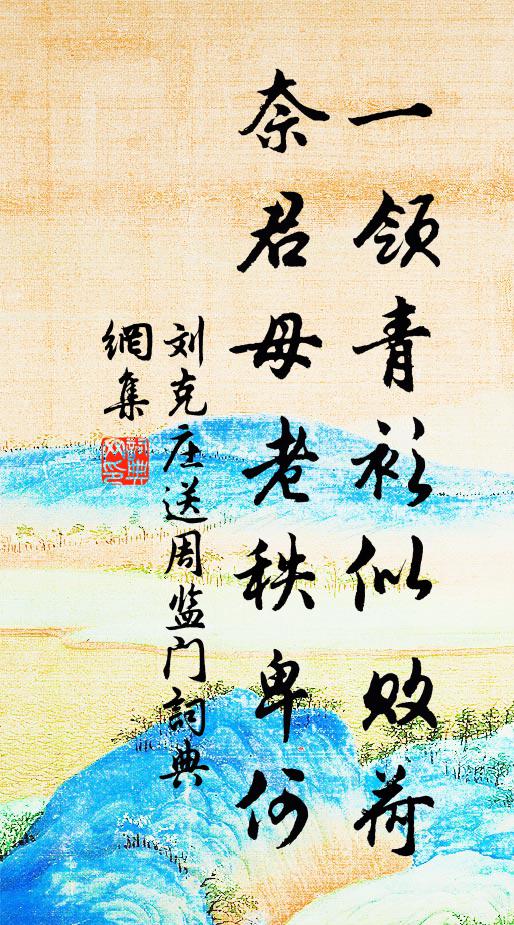 一领青衫似败荷
奈君母老秩卑何
刘克庄送周监门詞典
網集